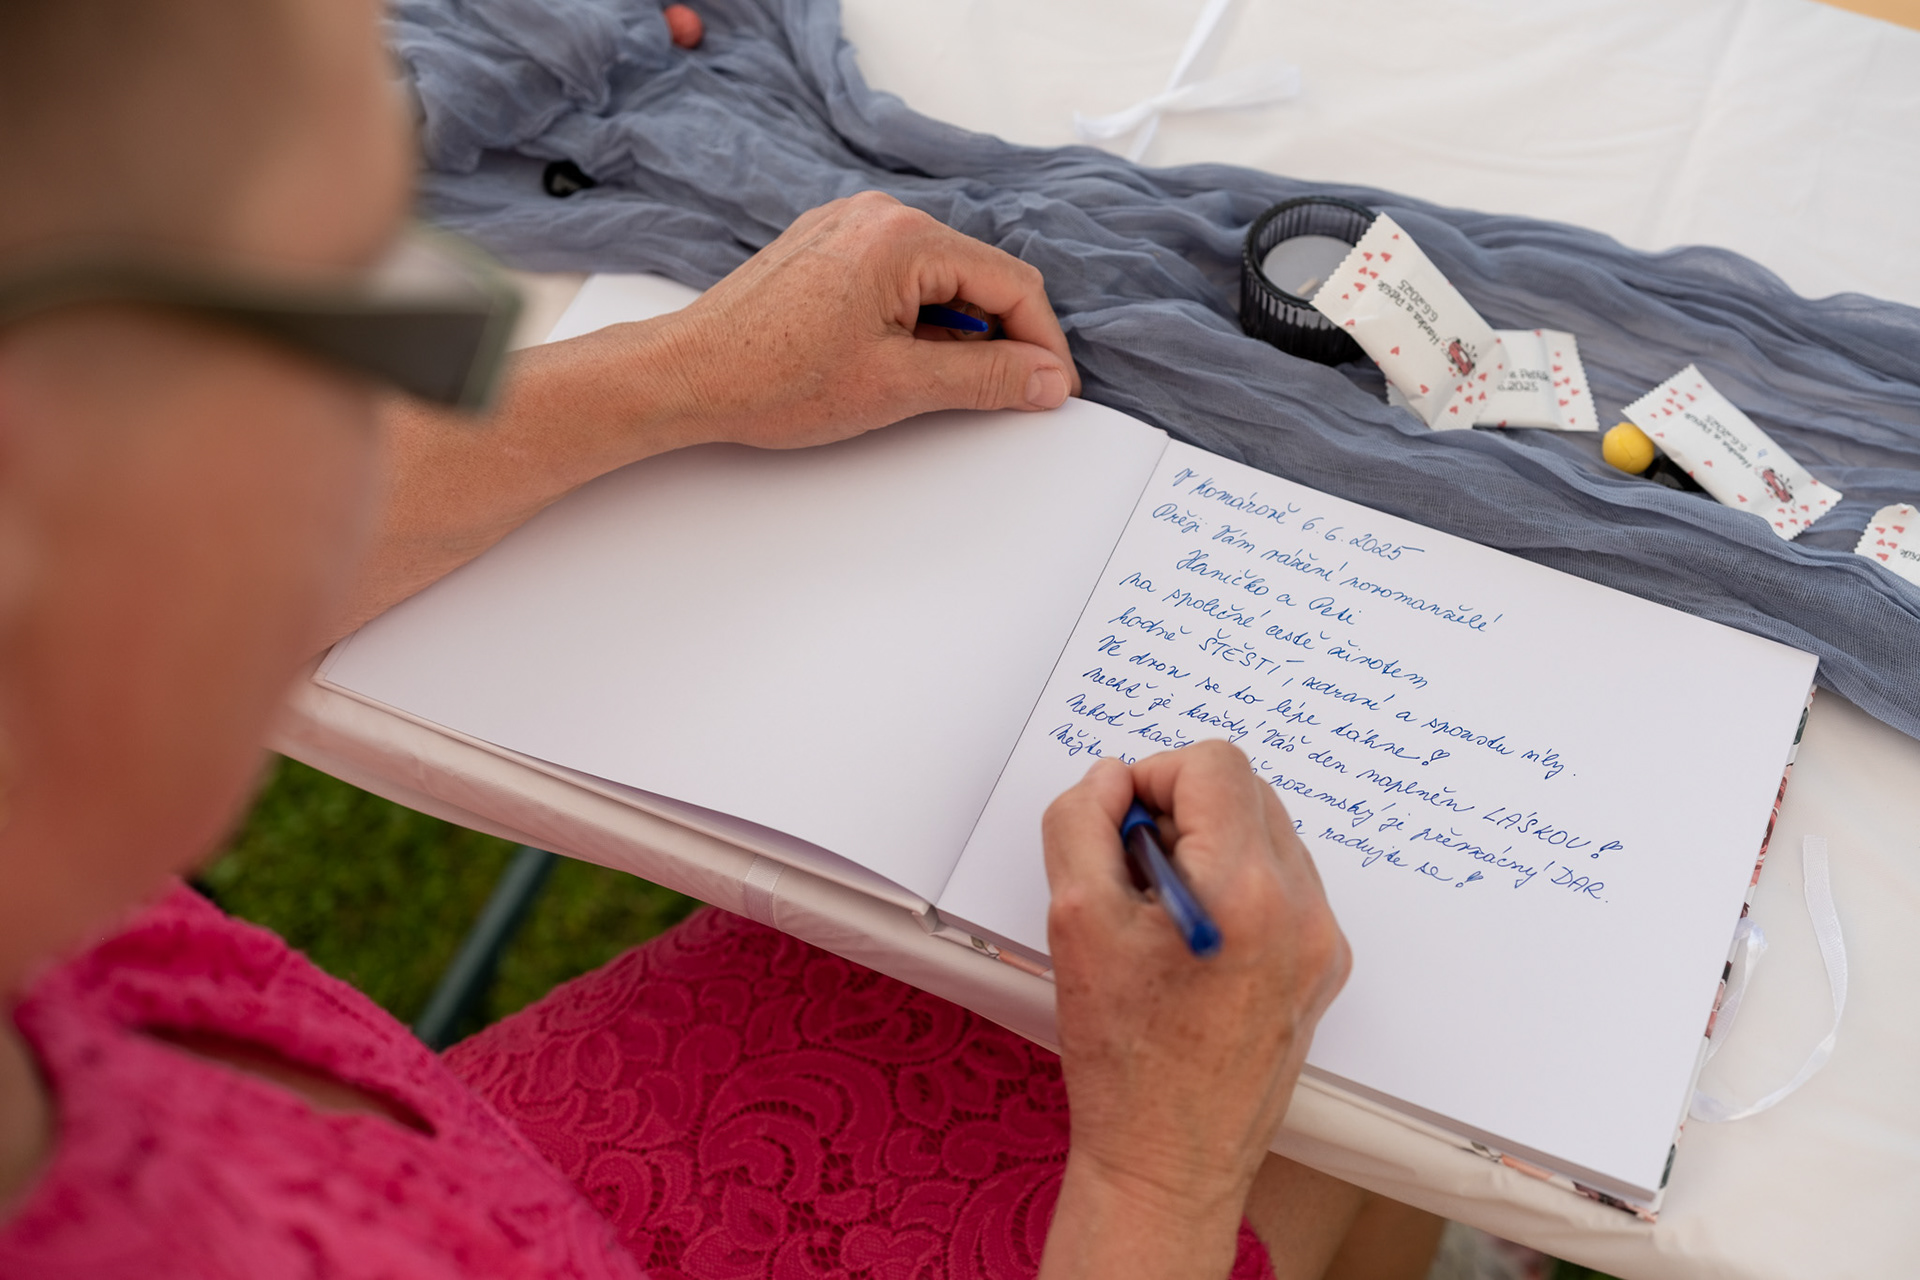 V Komárově 6.6.2025
Přeji Vám vážení novomanželé
Haničko a Peti
na společné cestě životem
hodně ŠTĚSTÍ, zdraví a spoustu síly.
Ve dvou se to lépe táhne!
Nechť je každý Váš den naplněn LÁSKOU!
neboť každ pozemský je převzácný DAR.
Mějte se a radujte se!
Hanka a Petík
6.6.2025
a Petík
6.2025
Hanka a Petík
6.6.2025